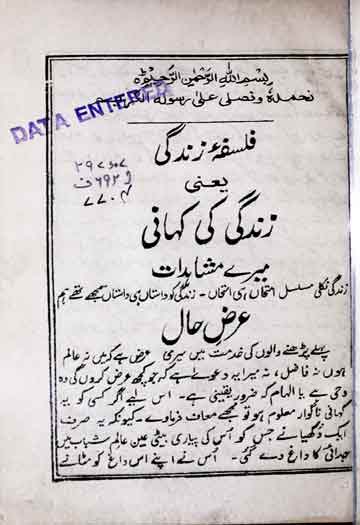 بِسْمِ اللهِ الرَّحْمٰنِ الرَّحِيْمِ
نحمدہٗ و نصلی علیٰ رسولہ الکریم
DATA ENTERED
فلسفۂ زندگی
یعنی
زندگی کی کہانی
میرے مشاہدات
زندگی نکلی مسلسل امتحاں ہی امتحاں - زندگی کو داستاں ہی داستاں سمجھے تھے ہم
عرضِ حال
پہلے پڑھنے والوں کی خدمت میں میری عرض ہے کہ میں نہ عالم
ہوں نہ فاضل، نہ میرا یہ دعوےٰ ہے کہ جو کچھ عرض کروں گی وہ
وحی ہے یا الہام کہ ضرور یقینی ہے۔ اس لیے اگر کسی کو یہ
کہانی ناگوار معلوم ہو تو مجھے معاف فرماوے۔ کیونکہ یہ صرف
ایک دُکھیا نے جس کو اُس کی پیاری بیٹی عین عالمِ شباب میں
جدائی کا داغ دے گئی۔ اُس نے اپنے اس داغ کو مٹانے